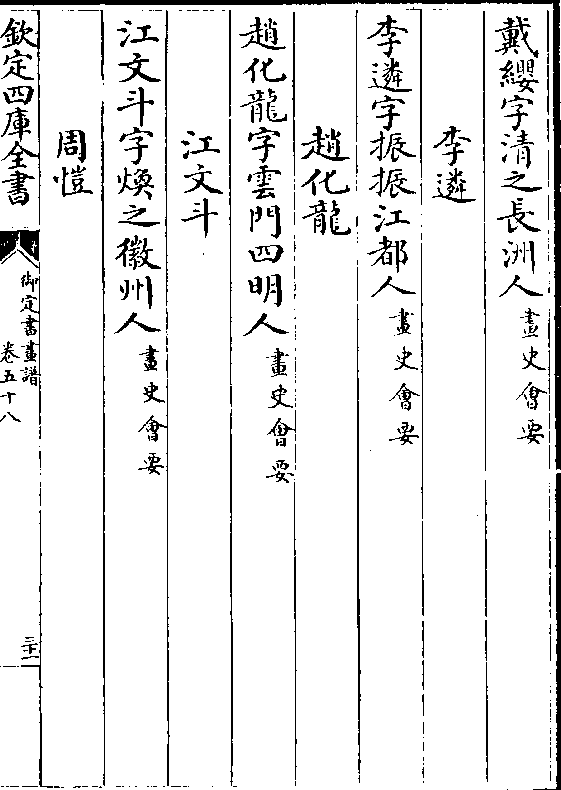 戴纓字清之長洲人畫史會要
李遴
李遴字振振江都人畫史會要
趙化龍
趙化龍字雲門四明人畫史會要
江文斗
江文斗字煥之徽州人畫史會要
周愷
欽定四庫全書
御定書畫譜
卷五十八
三十一